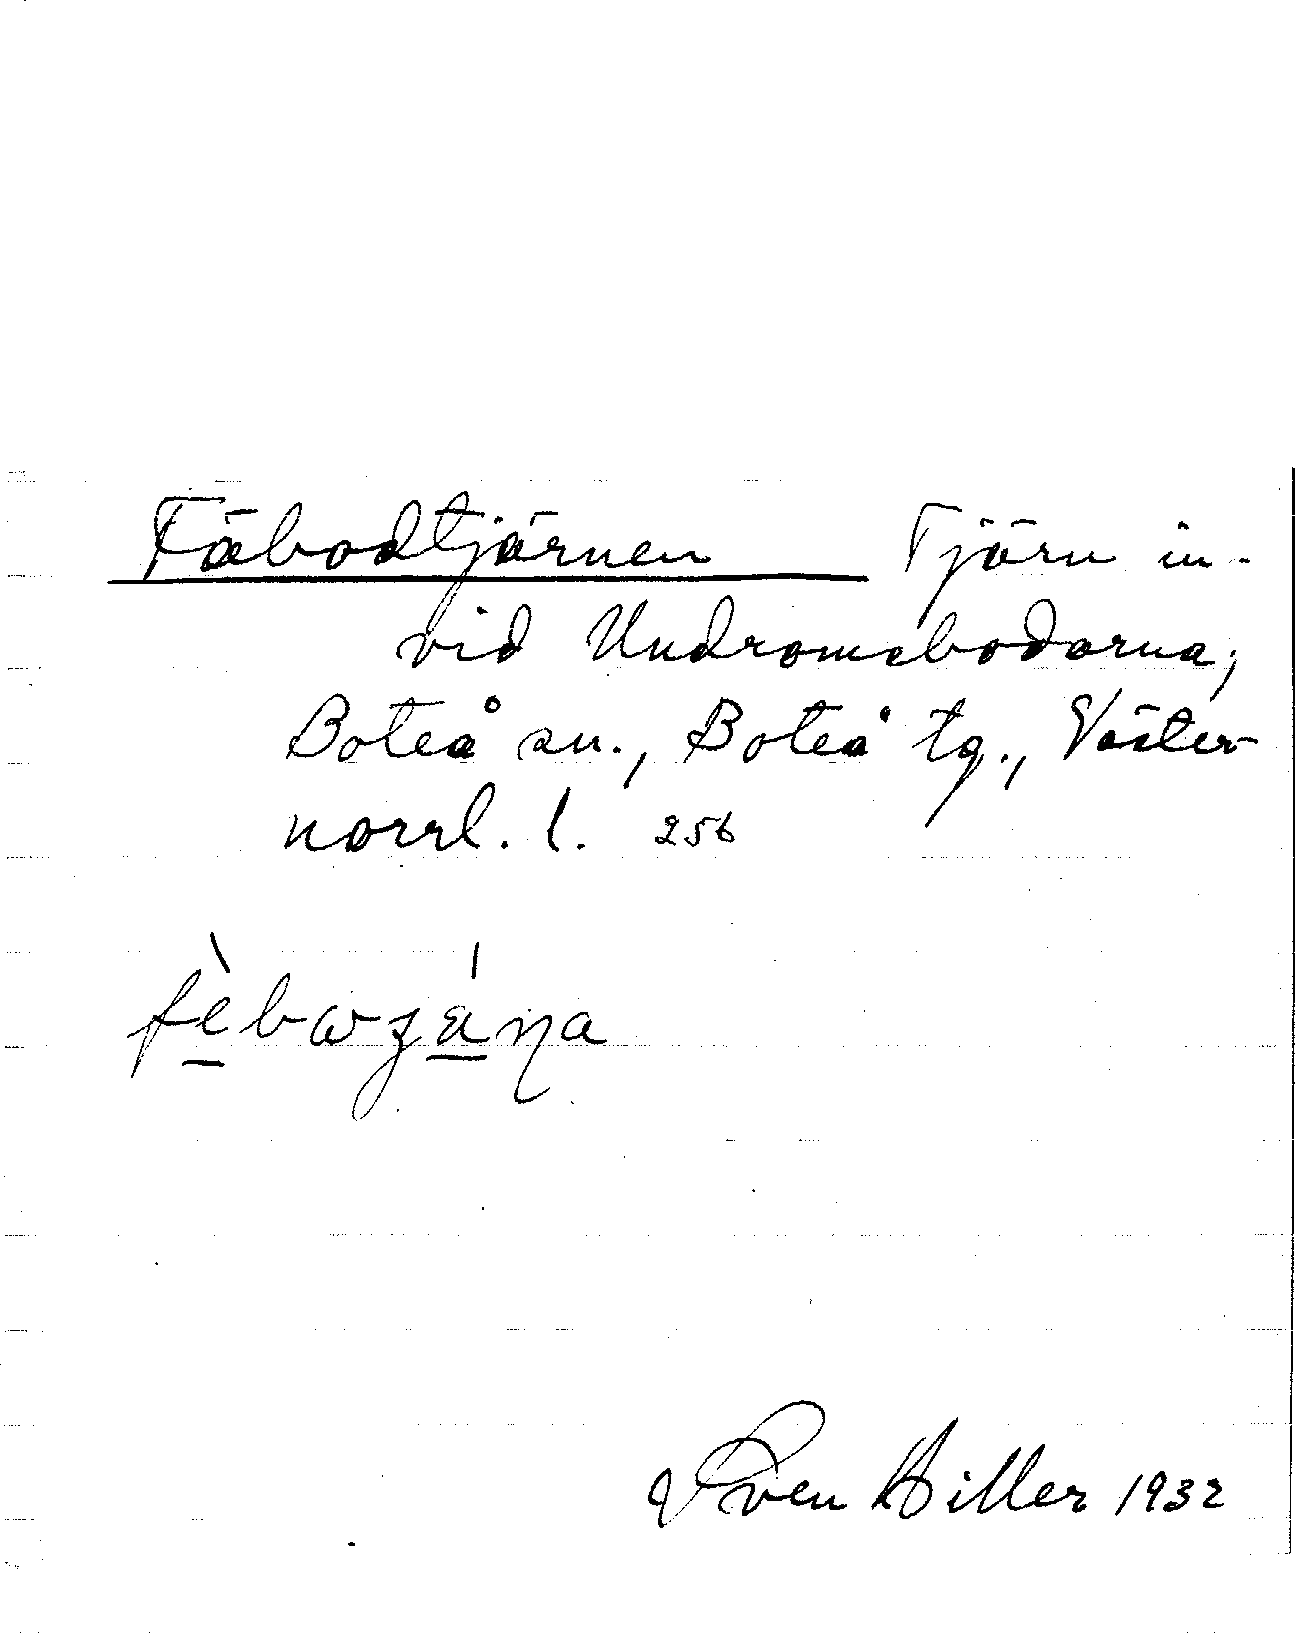 Fäbodtjärnen Tjärn in-
vid Undromsbodarna,
Boteå sn., Boteå tg., Väster-
norrl. l. 256
Sven Hiller 1932